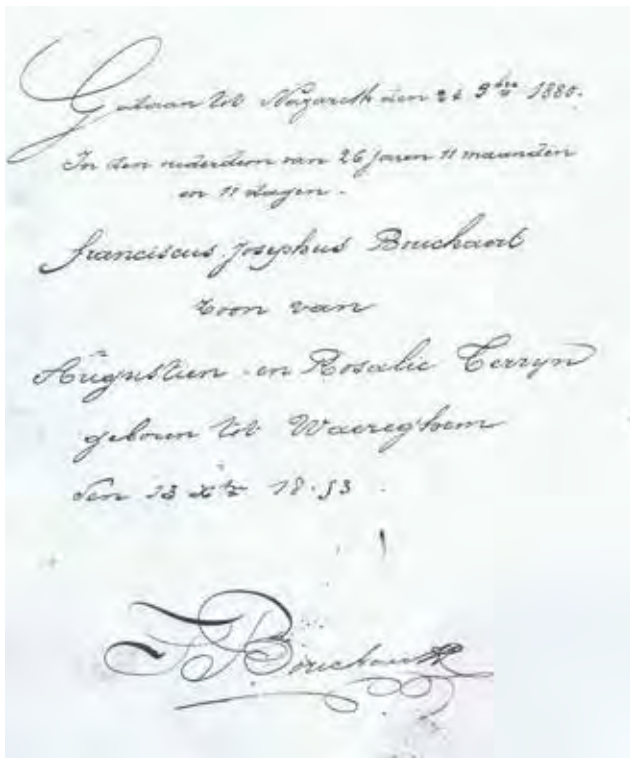 Gedaan tot Nazareth den 24 9bre 1880.
In den ouderdom van 26 jaren 11 maanden
en 11 dagen.
franciscus, Josephus Bouchaert
zoon van
Augustien en Rosalie Terryn
geboren tot Waereghem
den 13 xbr 18.53.
F Bouchaert